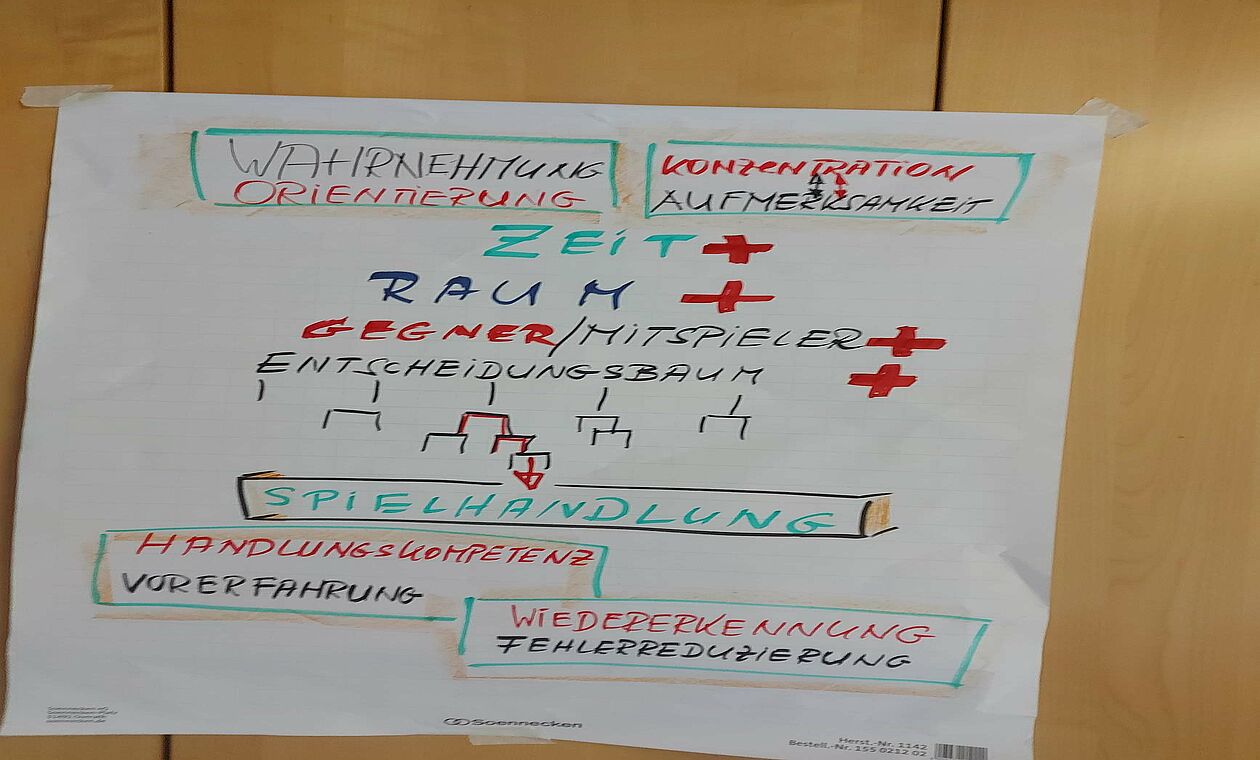 WAHRNEHMUNG
ORIENTIERUNG
KONZENTRATION
AUFMERKSAMKEIT
ZEIT +
RAUM +
GEGNER/MITSPIELER +
ENTSCHEIDUNGSBAUM +
SPIELHANDLUNG
HANDLUNGSKOMPETENZ
VORERFAHRUNG
WIEDERERKENNUNG
FEHLERREDUZIERUNG
Soennecken eG
Soennecken-Platz
51491 Overath
soennecken.de
Soennecken
Herst.-Nr. 1142
Bestell.-Nr. 155 0212 02